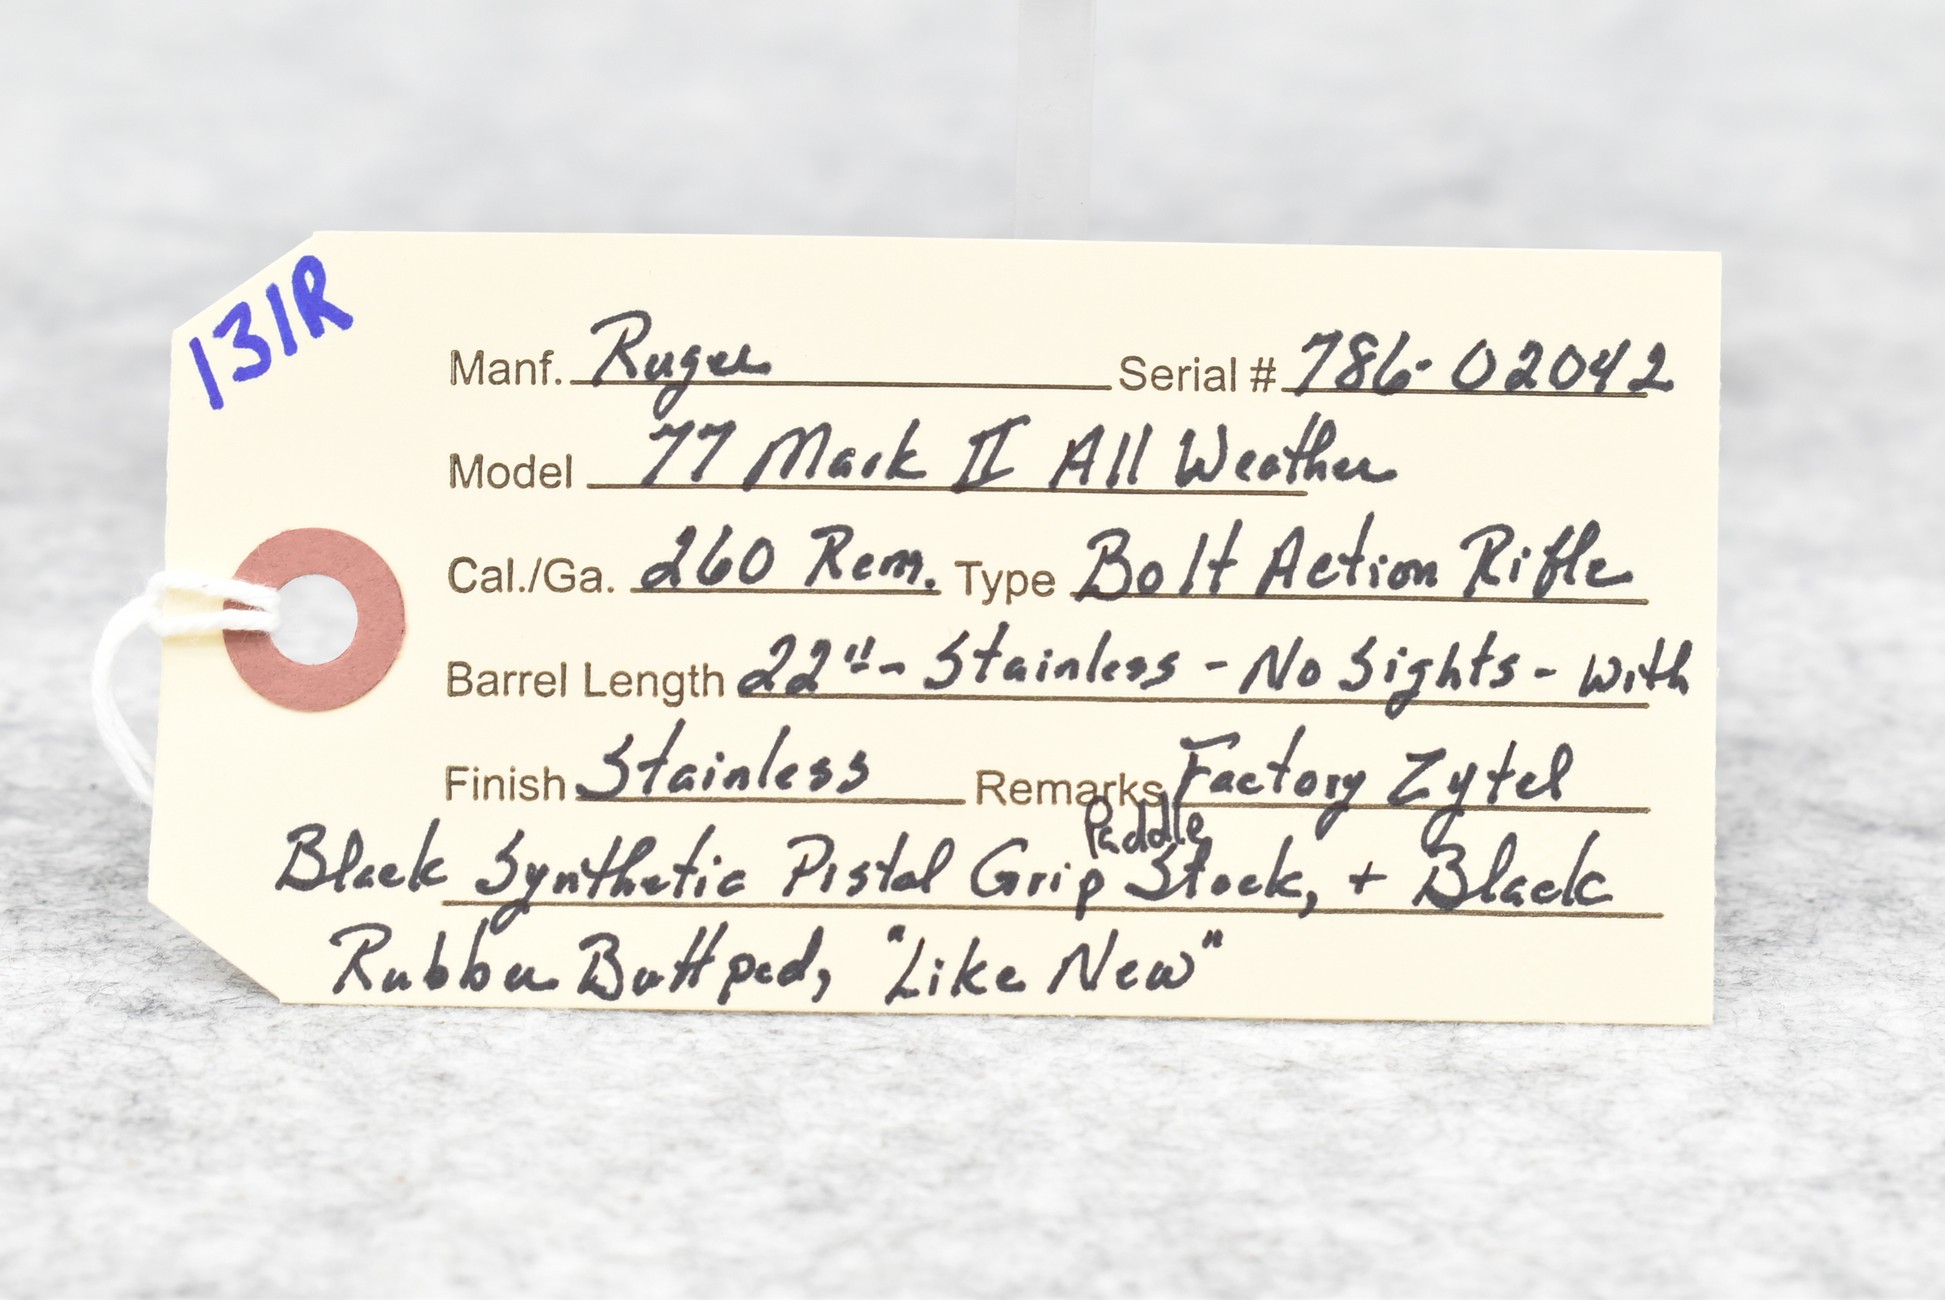 131R
Manf. Ruger Serial # 786-02042
Model 77 Mark II All Weather
Cal./Ga. 260 Rem. Type Bolt Action Rifle
Barrel Length 22" - Stainless - No Sights - with
Finish Stainless Remarks Factory Zytel
Paddle
Black Synthetic Pistol Grip Stock, + Black
Rubber Buttpad, "Like New"